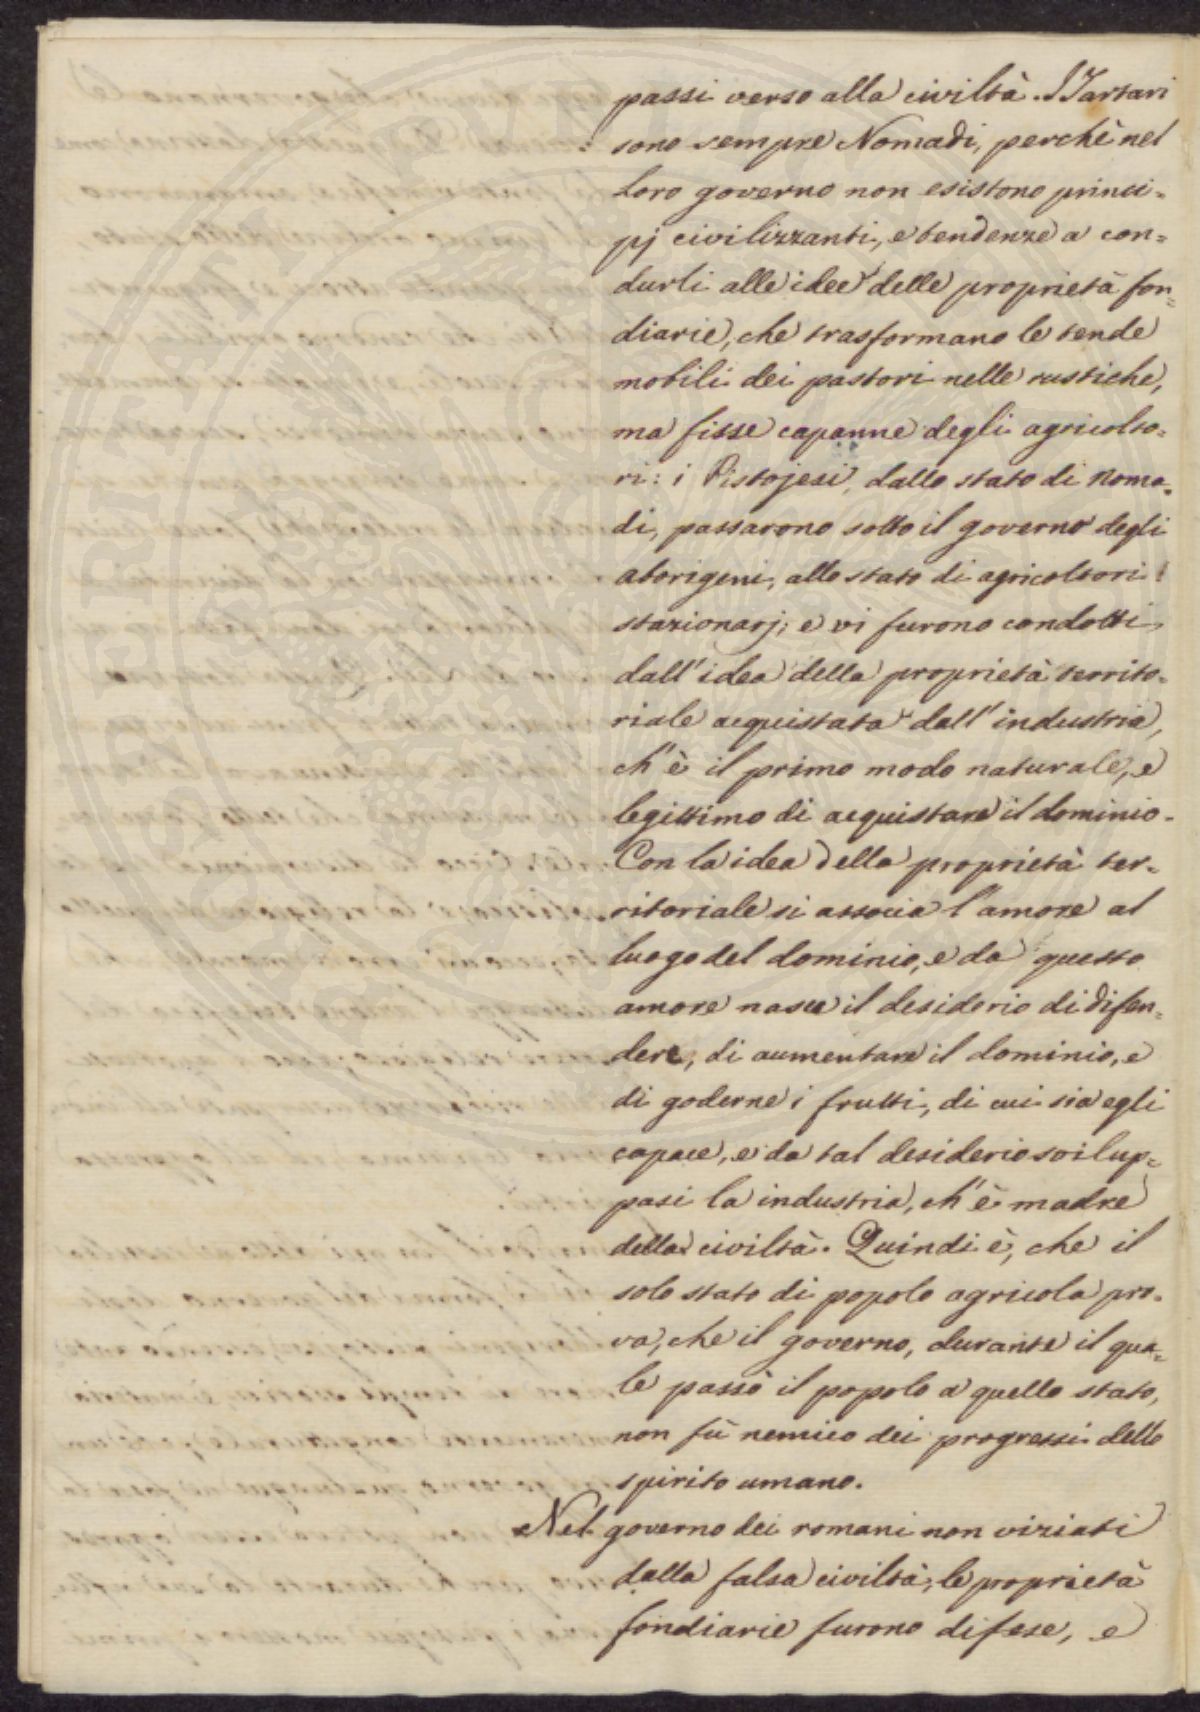 passi verso alla civiltà. I Tartari
sono sempre Nomadi, perchè nel
loro governo non esistono princi=
pj civilizzanti, e tendenze a con=
durli alle idee delle proprietà fon=
diarie, che trasformano le tende
mobili dei pastori nelle rustiche,
ma fisse capanne degli agricolto=
ri: i Pistojesi, dallo stato di Noma=
di, passarono sotto il governo degli
aborigeni, allo stato di agricoltori
stazionarj; e vi furono condotti
dall'idea della proprietà territo=
riale acquistata dall'industria,
ch'è il primo modo naturale, e
legittimo di acquistare il dominio.
Con la idea della proprietà ter=
ritoriale si associa l'amore al
luogo del dominio, e da questo
amore nasce il desiderio di difen=
dere, di aumentare il dominio, e
di goderne i frutti, di cui sia egli
capace, e da tal desiderio svilup=
pasi la industria, ch'è madre
della civiltà. Quindi è, che il
solo stato di popolo agricola pro=
va, che il governo, durante il qua=
le passò il popolo a quello stato,
non fù nemico dei progressi dello
spirito umano.
Nel governo dei romani non viziati
dalla falsa civiltà, le proprietà
fondiarie furono difese, e